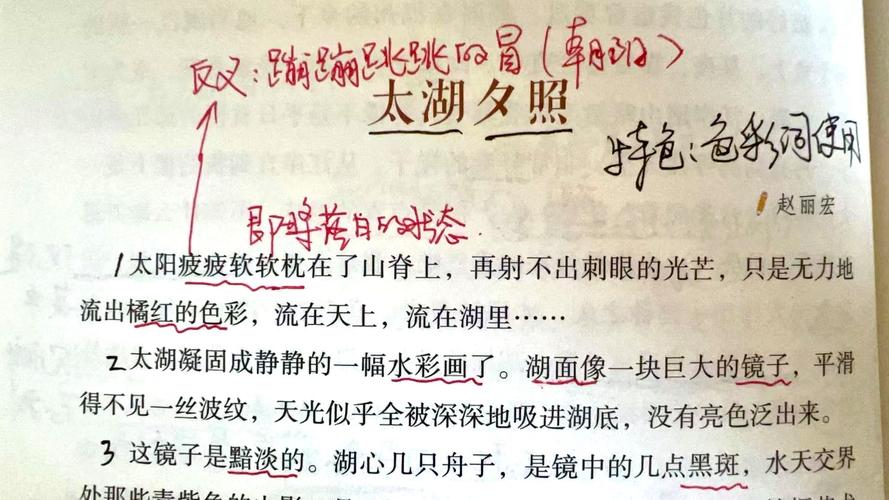 反义：蹦蹦跳跳的冒（朝阳）
太湖夕照
特色：色彩词使用
赵丽宏
即将落日的状态.
1太阳疲疲软软枕在了山脊上，再射不出刺眼的光芒，只是无力地
流出橘红的色彩，流在天上，流在湖里……
2太湖凝固成静静的一幅水彩画了。湖面像一块巨大的镜子，平滑
得不见一丝波纹，天光似乎全被深深地吸进湖底，没有亮色泛出来。
3这镜子是黯淡的。湖心几只舟子，是镜中的几点黑斑，水天交界
处那些青紫色的山影